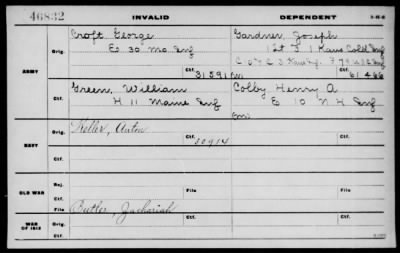 46832 INVALID DEPENDENT 3-15-6
Croft, George Gardner, Joseph
Orig. E 30 Mo. Inf 1st S 1 Kans Cold Inf
ARMY Ctf. 31591 61466
Green, William Colby Henry A
Ctf. H 11 Maine Inf E 10 N H Inf
Keller, Anton
Orig. Ctf. 30914
NAVY
Ctf.
Rej.
Ctf. Ctf.
OLD WAR File File
Butler, Zachariah
WAR OF 1812 Ctf. Ctf.